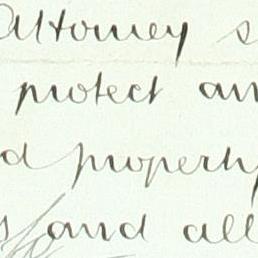 Attorney s
protect an
d property
s and all